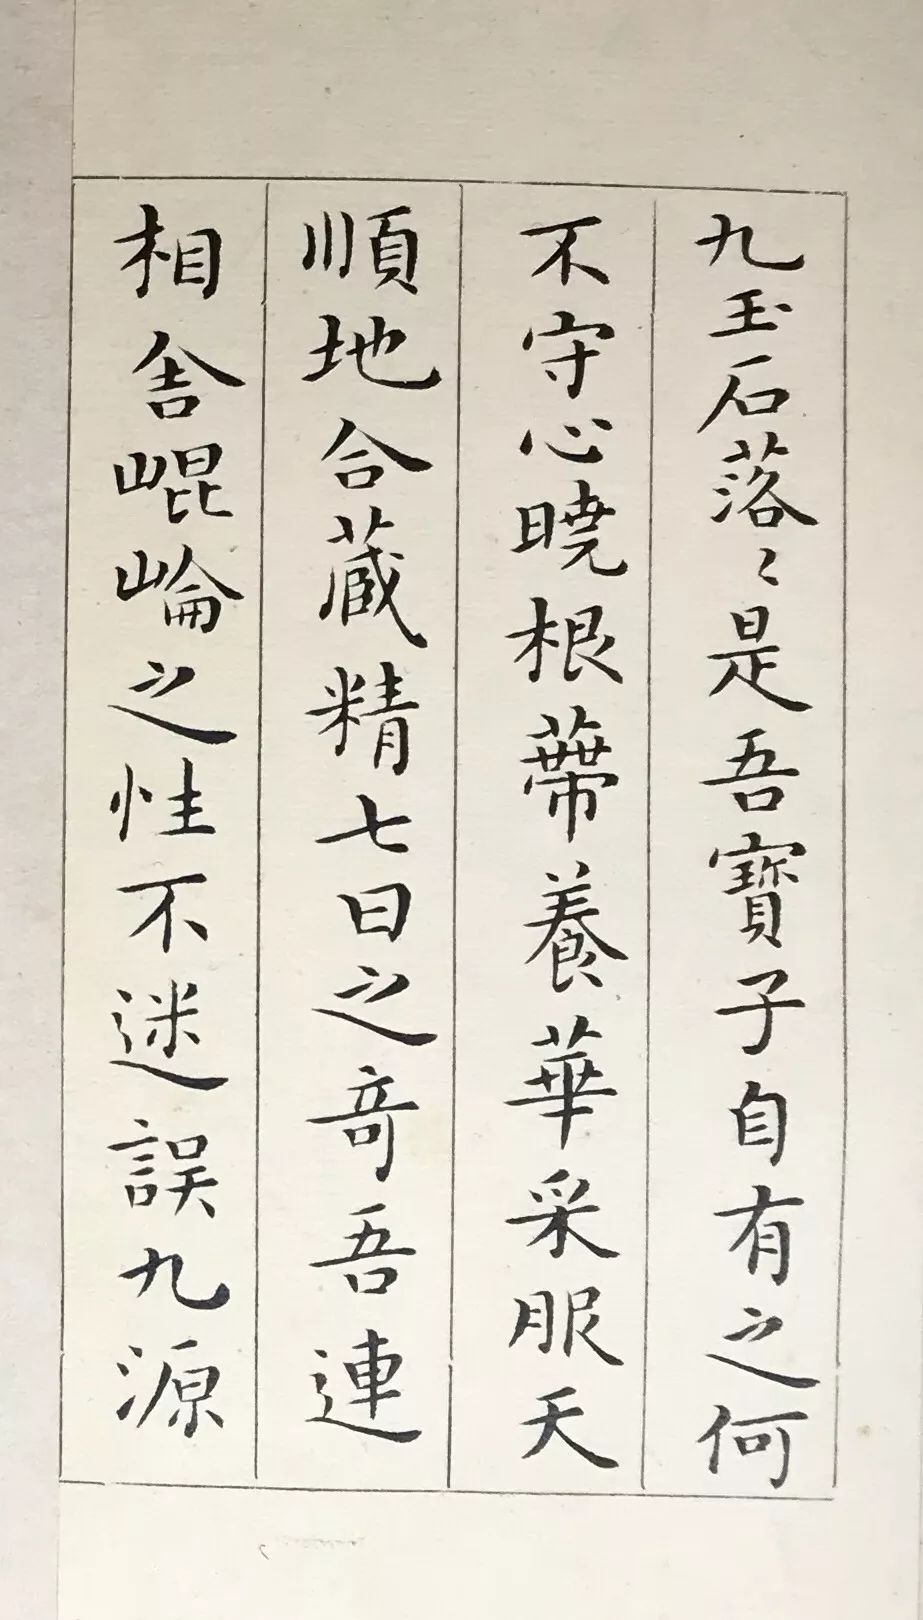 九玉石落〻是吾寶子自有之何
不守心曉根蔕養華采服天
順地合藏精七日之奇吾連
相舎崐崘之性不迷誤九源